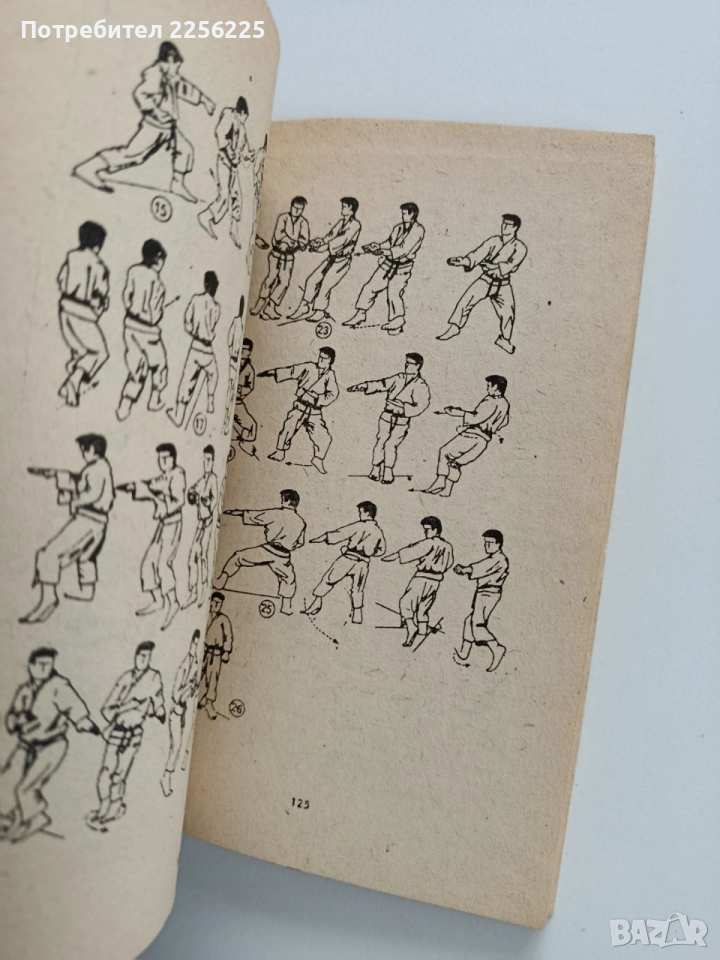 Потребител 2256225
15
17
23
25
26
125
BAZAR